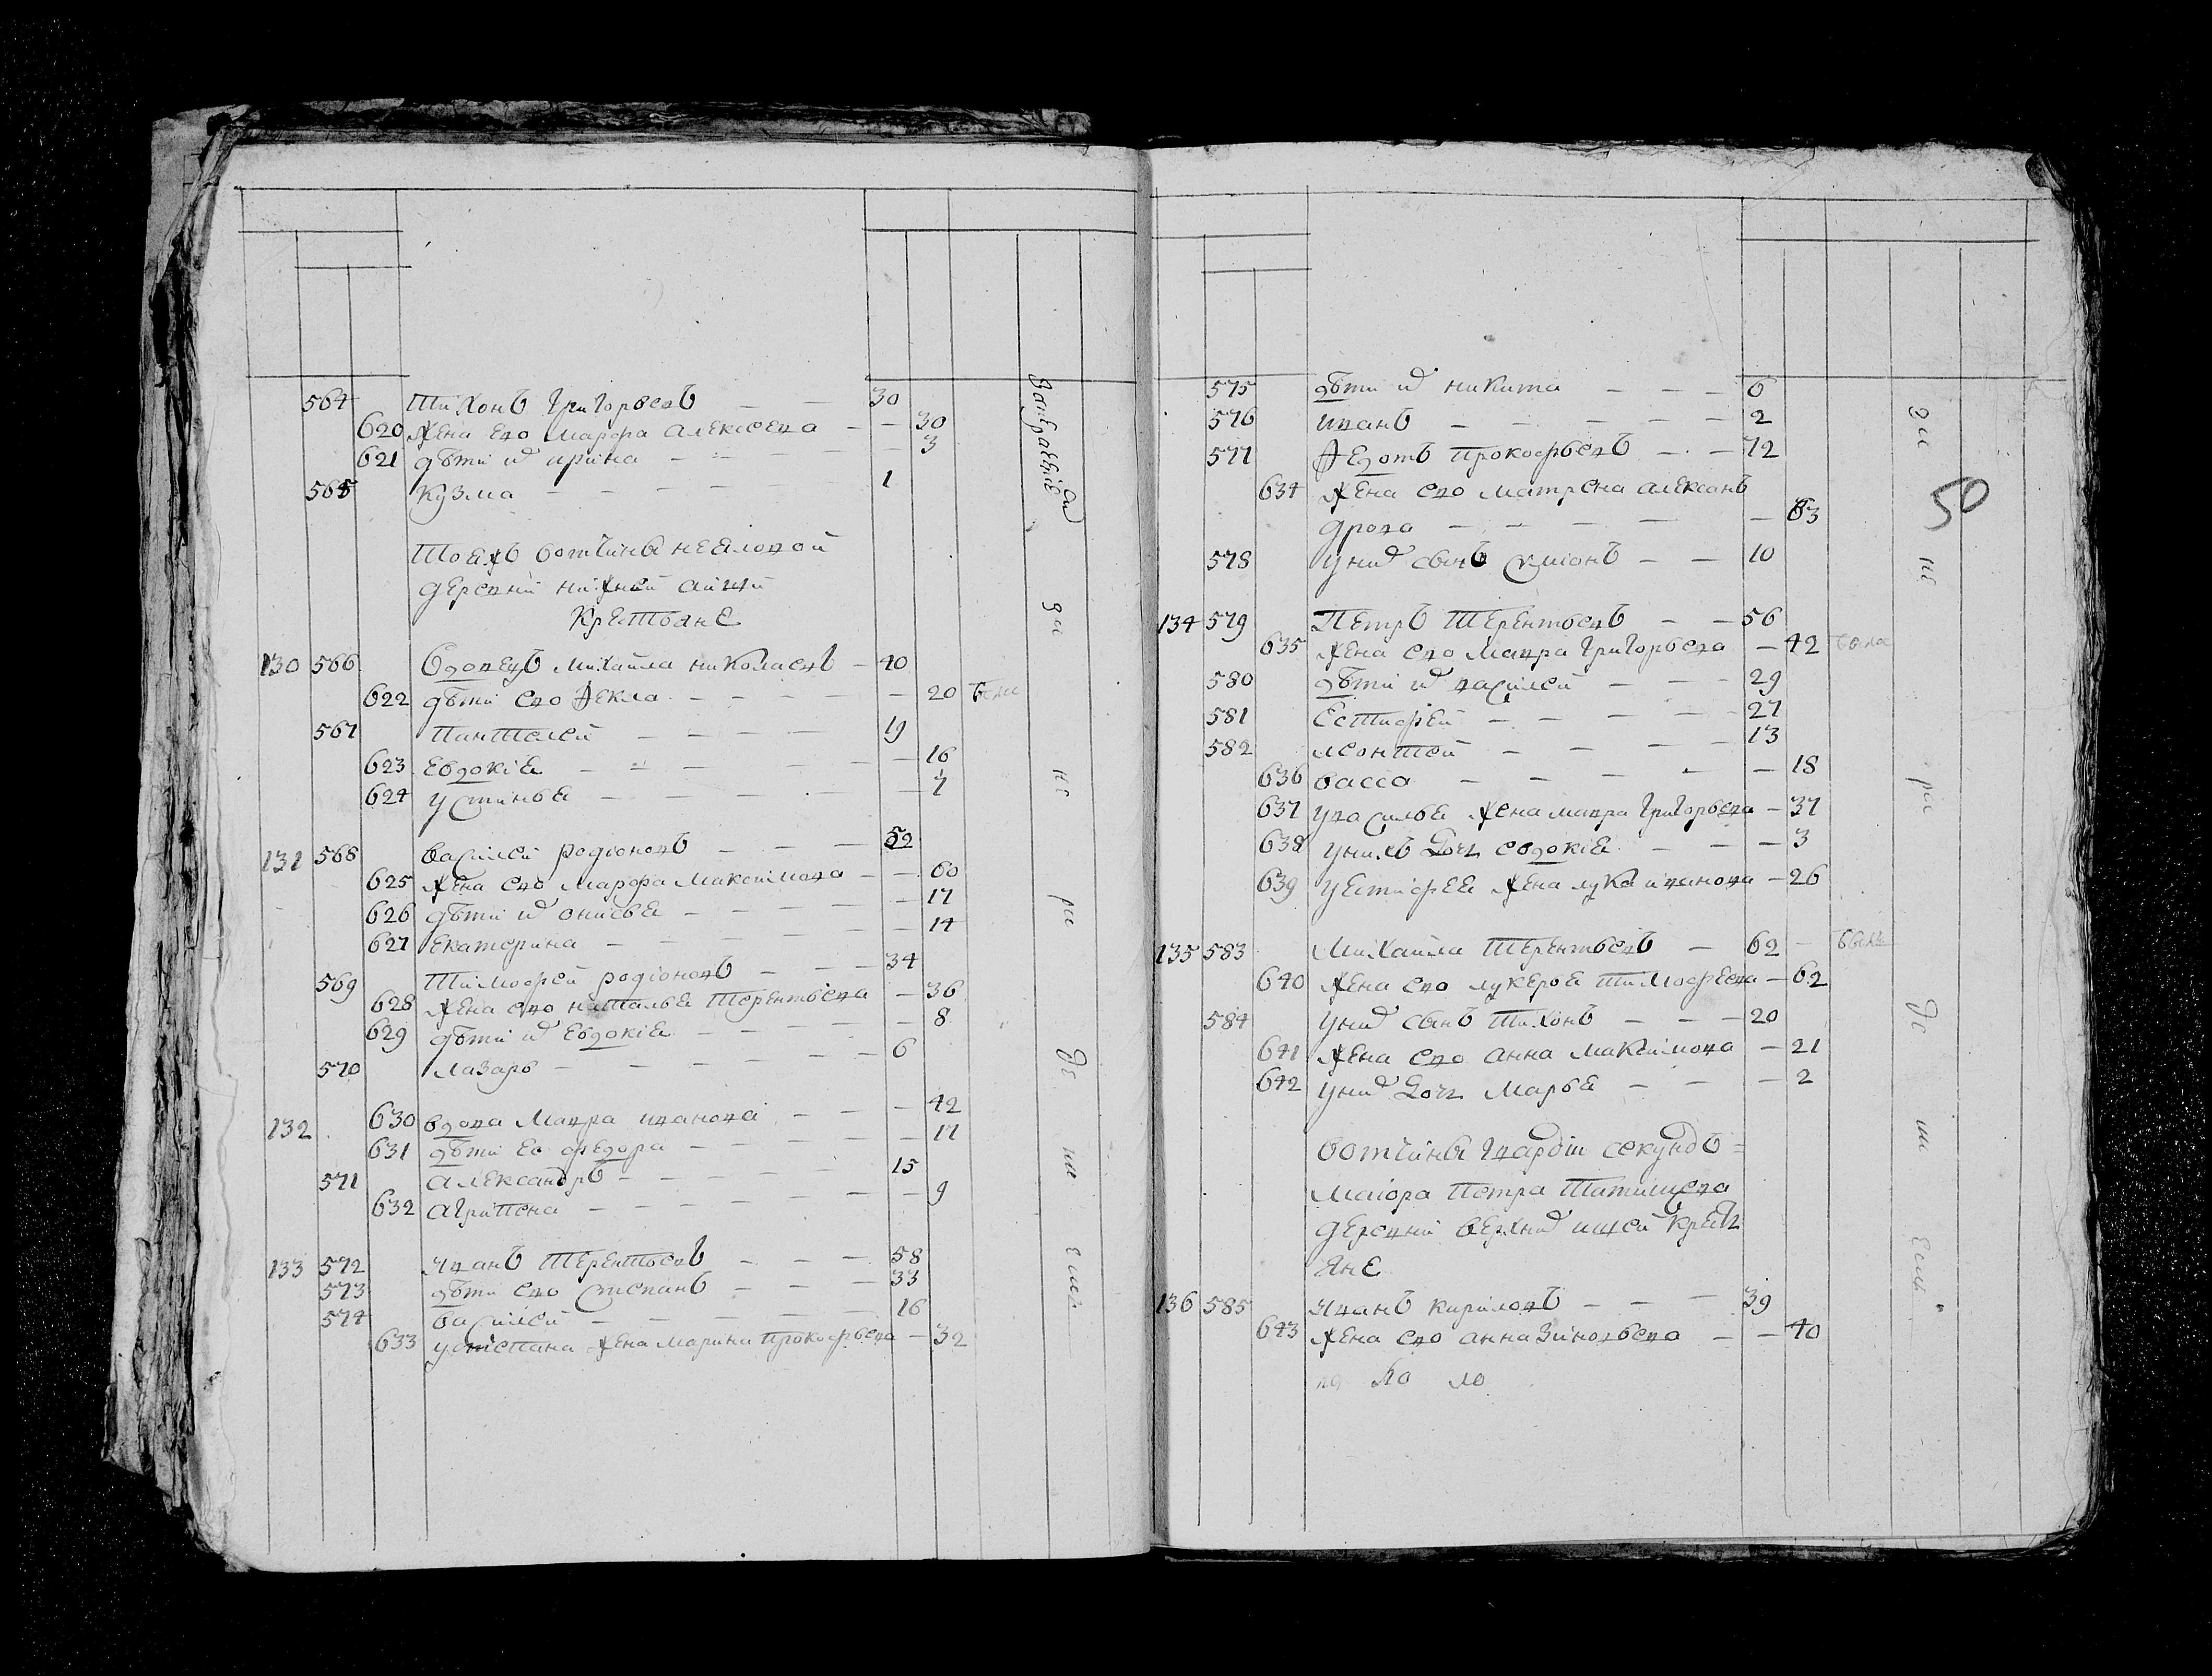 564 Тихонъ Григорьевъ — — 30
620 жена ево Марфа алексеева — — 30
621 дѣти их ирина — — — — 3
565 Кузма — — — — 1
Тоежъ вотчины нееловой
деревни нижней
Крестьяне
130 566 вдовецъ Михайла николаевъ — 40
622 дѣти ево Фекла — — — — — 20
567 Пантелей — — — — 19
623 Евдокия — — — — — 16
624 устинья — — — — 7
131 568 василей родионовъ — — — 52
625 жена ево марфа максимова — — 60
626 дѣти их анисья — — — — — 17
627 Екатерина — — — — — 14
569 Тимофей родионовъ — — — 34
628 жена ево наталья Терентьева — 36
629 дѣти их Евдокия — — — — 8
570 лазарь — — — — — 6
132 630 вдова мавра иванова — — — 42
631 дѣти ее федора — — 17
571 александръ — — — 15
632 агрипена — — — — — 9
133 572 иванъ Терентьевъ — — — 58
573 дѣти ево степанъ — — — 33
574 василей — — — — 16
633 устепана жена марина прокофьева — 32
за
не
ри
де
ни
50
575 дѣти их никита — — — 6
576 иванъ — — — — — 2
577 Федотъ прокофьевъ — — 72
634 жена ево матрена алексанъ
дрова — — — — — 63
578 уних сынъ семионъ — — 10
134 579 Петръ Терентьевъ — — 56
635 жена ево мавра Григорьева — 42
580 дѣти их василей — — — 29
581 Естифей — — — — — 27
582 леонтей — — — — 13
636 васса — — — — — 18
637 увасилья жена мавра Григорьева — 37
638 унихъ дочь евдокия — — — 3
639 уестифея жена лукя иванова — 26
135 583 михайла Терентьевъ — 62
640 жена ево лукерья Тимофеева — 62
584 уних сынъ Тихонъ — — — 20
641 жена ево анна максимова — 21
642 уних дочь марья — — — 2
вотчины гвардии секундъ =
маиора петра Татищева
деревни верхних крестъ
яне
136 585 иванъ кириловъ — — — 39
643 жена ево анна Зиновьева — — 40
не
ри
де